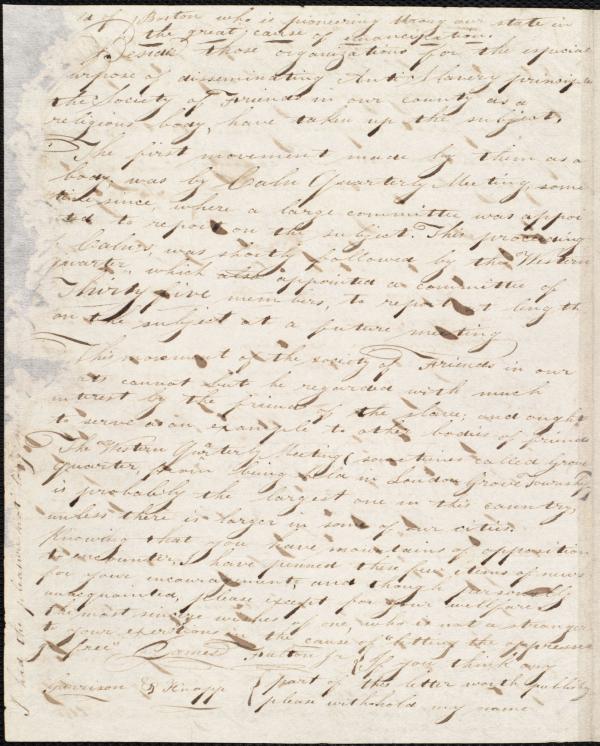 of Boston who is pioneering through our state in
the great cause of emancipation.
Beside those organizations for the especial
urpose of disseminating Anti Slavery principles
the Society of Friends in our county as a
religious body, have taken up the subject,
The first movement made by them as a
body was by Caln Quarterly Meeting, some
time since, where a large committee was appoi
ted to report on the subject. This proceeding
Caln's, was shortly followed by the "Western
quarter", which also appointed a committee of
Thirty five members, to report at length
on the subject at a future meeting
This movement of the society of Friends in our
cannot but be regarded with much
interest by the friends of the slave; and ought
to serve as an example to other bodies of friends
The Western Quarterly Meeting (sometimes called Grove
Quarter, from being held in London Grove Township)
is probably the largest one in this country,
unless there is larger in some of our cities.
Knowing that you have mountains of opposition
to encounter, I have penned these few items of news
for your encouragement, and though personally
unacquainted, please except for your wellfare
the most sincere wishes of one who is not a stranger
to your exertions in the cause of "letting the oppressed
go free" James Fulton Jr
If you think any
part of this letter worth publishing
please withhold my name
Garrison & Knapp
had the pleasure